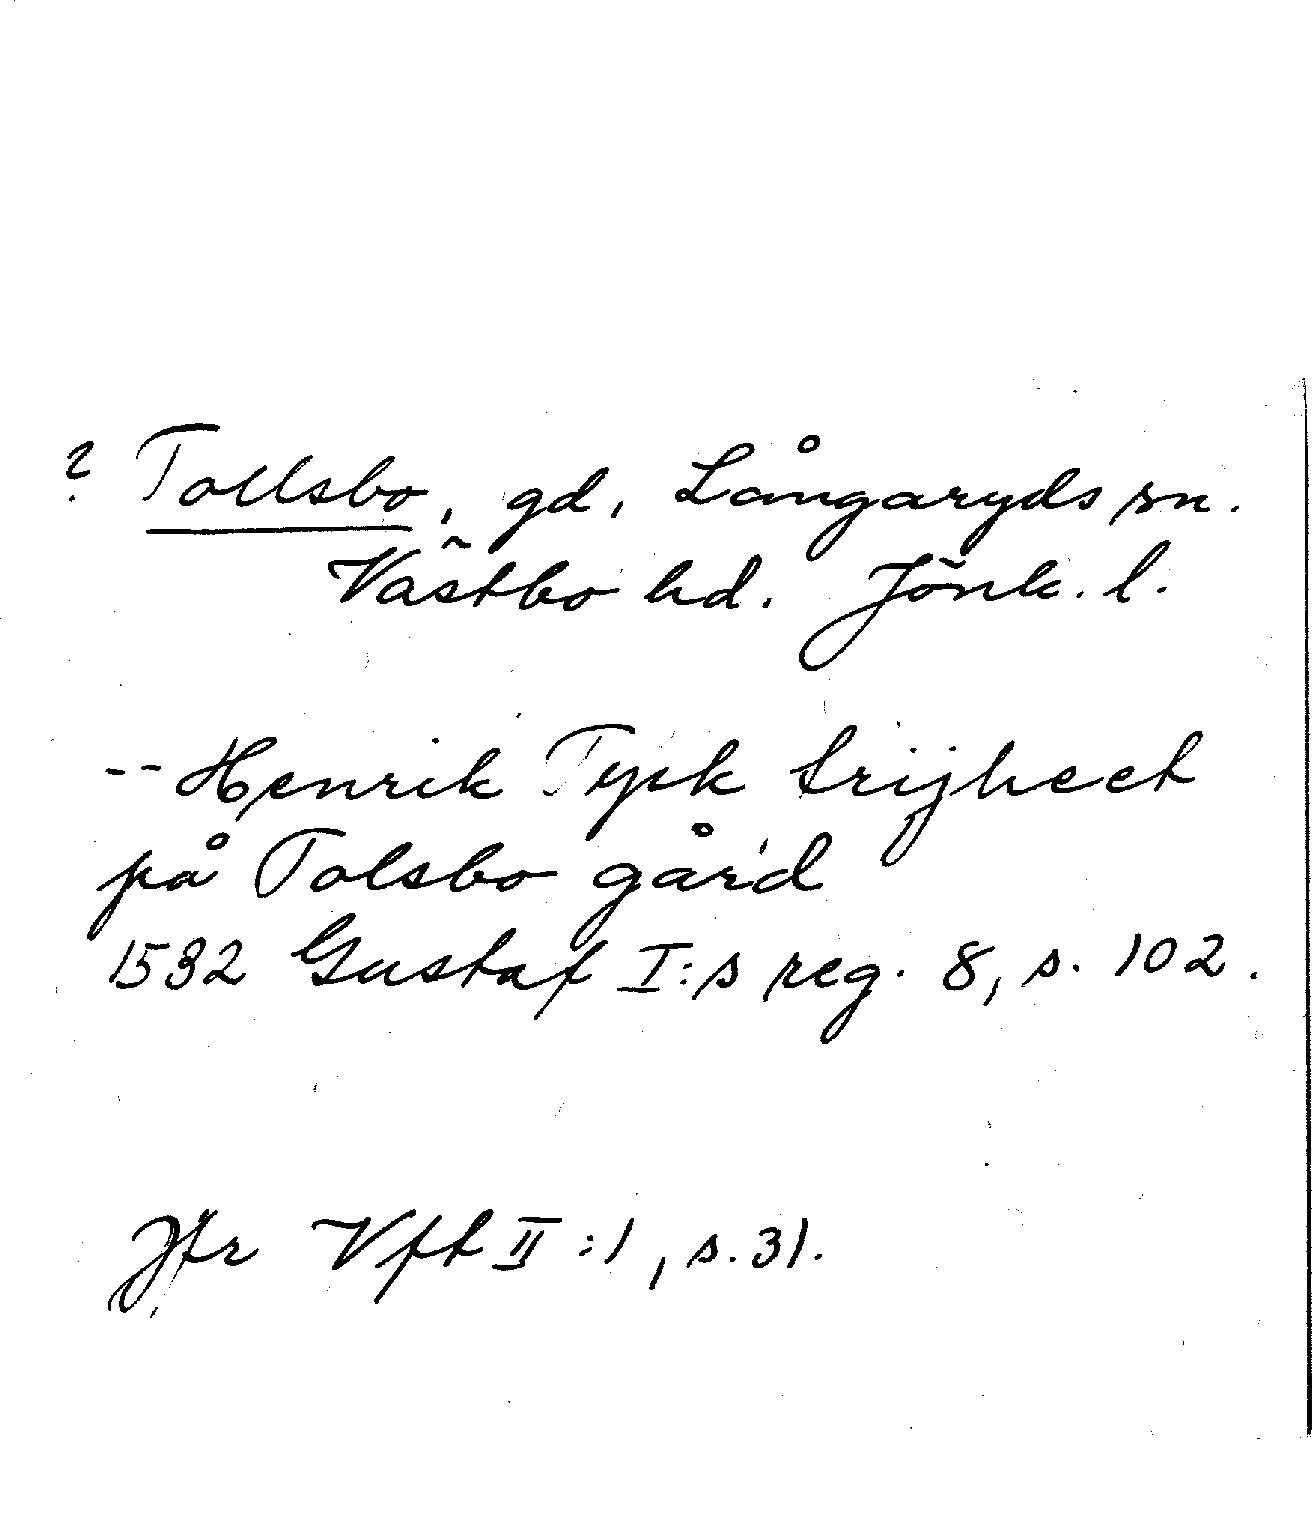 ? Tollsbo, gd, Långaryds sn.
Västbo hd. Jönk. l.
-- Henrik Tysk frijheet
på Tolsbo gård
1532 Gustaf I:s reg. 8, s. 102.
Jfr Vft II:1, s. 31.